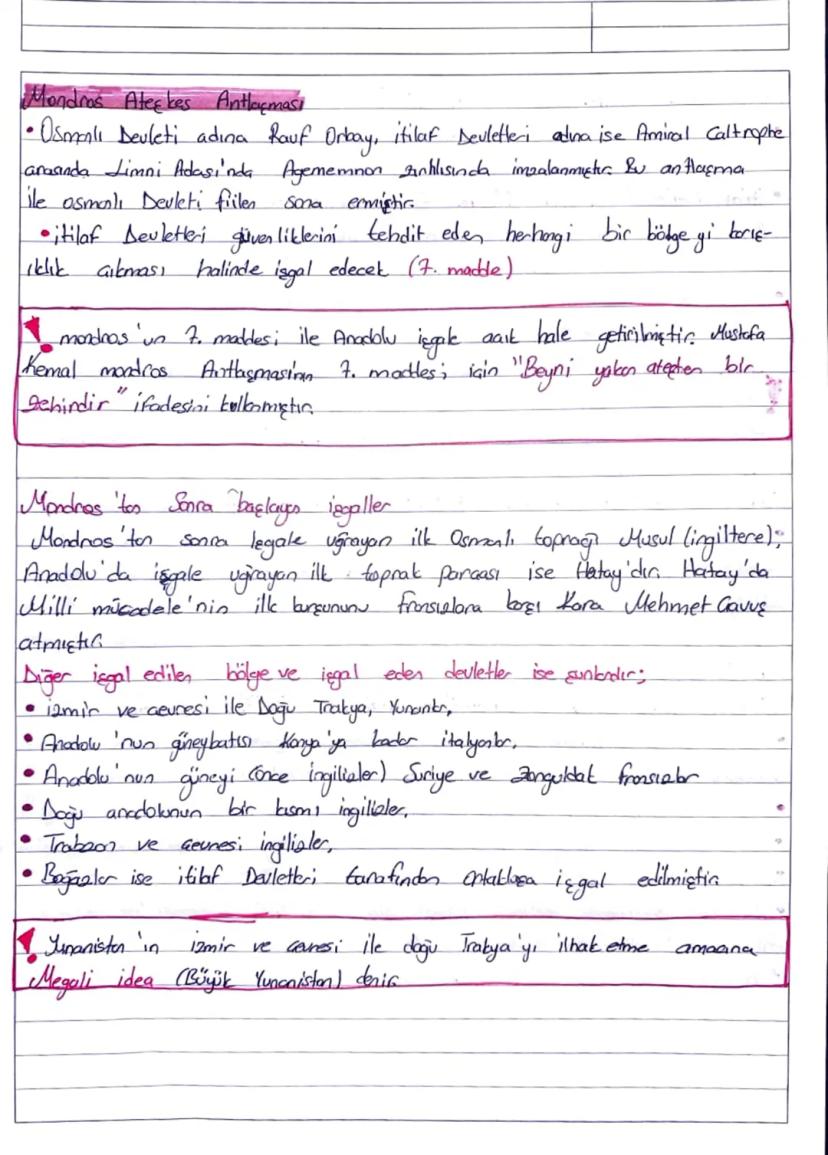 Mondros Ateşkes Antlaşması
• Osmanlı Devleti adına Rauf Orbay, itilaf Devletleri adına ise Amiral Caltrophe
arasında Limni Adası'nda Agememnon zırhlısında imzalanmıştır. Bu antlaşma
ile osmanlı Devleti fiilen sona ermiştir.
• itilaf Devletleri güvenliklerini tehdit eden herhangi bir bölgeyi karış-
ıklık çıkması halinde işgal edecek (7. madde)
! mondros'un 7. maddesi ile Anadolu işgale açık hale getirilmiştir. Mustafa
Kemal mondros Antlaşmasının 7. maddesi için "Beyni yakan ateşten bir
zehirdir" ifadesini kullanmıştır.
Mondros'tan Sonra başlayan işgaller
Mondros'tan sonra işgale uğrayan ilk Osmanlı toprağı Musul (ingiltere);
Anadolu'da işgale uğrayan ilk toprak parçası ise Hatay'dır. Hatay'da
Milli mücadele'nin ilk kurşununu fransızlara karşı Kara Mehmet Çavuş
atmıştır.
Diğer işgal edilen bölge ve işgal eden devletler ise şunlardır;
• izmir ve çevresi ile Doğu Trakya, Yunanlar,
• Anadolu'nun güneybatısı Konya'ya kadar italyanlar,
• Anadolu'nun güneyi (önce ingilizler) Suriye ve Zonguldak fransızlar
• Doğu anadolunun bir kısmı ingilizler,
• Trabzon ve çevresi ingilizler,
• Boğazlar ise itilaf Devletleri tarafından ortaklaşa işgal edilmiştir.
! Yunanistan'ın izmir ve çevresi ile doğu Trakya'yı ilhak etme amacına
Megali idea (Büyük Yunanistan) denir.